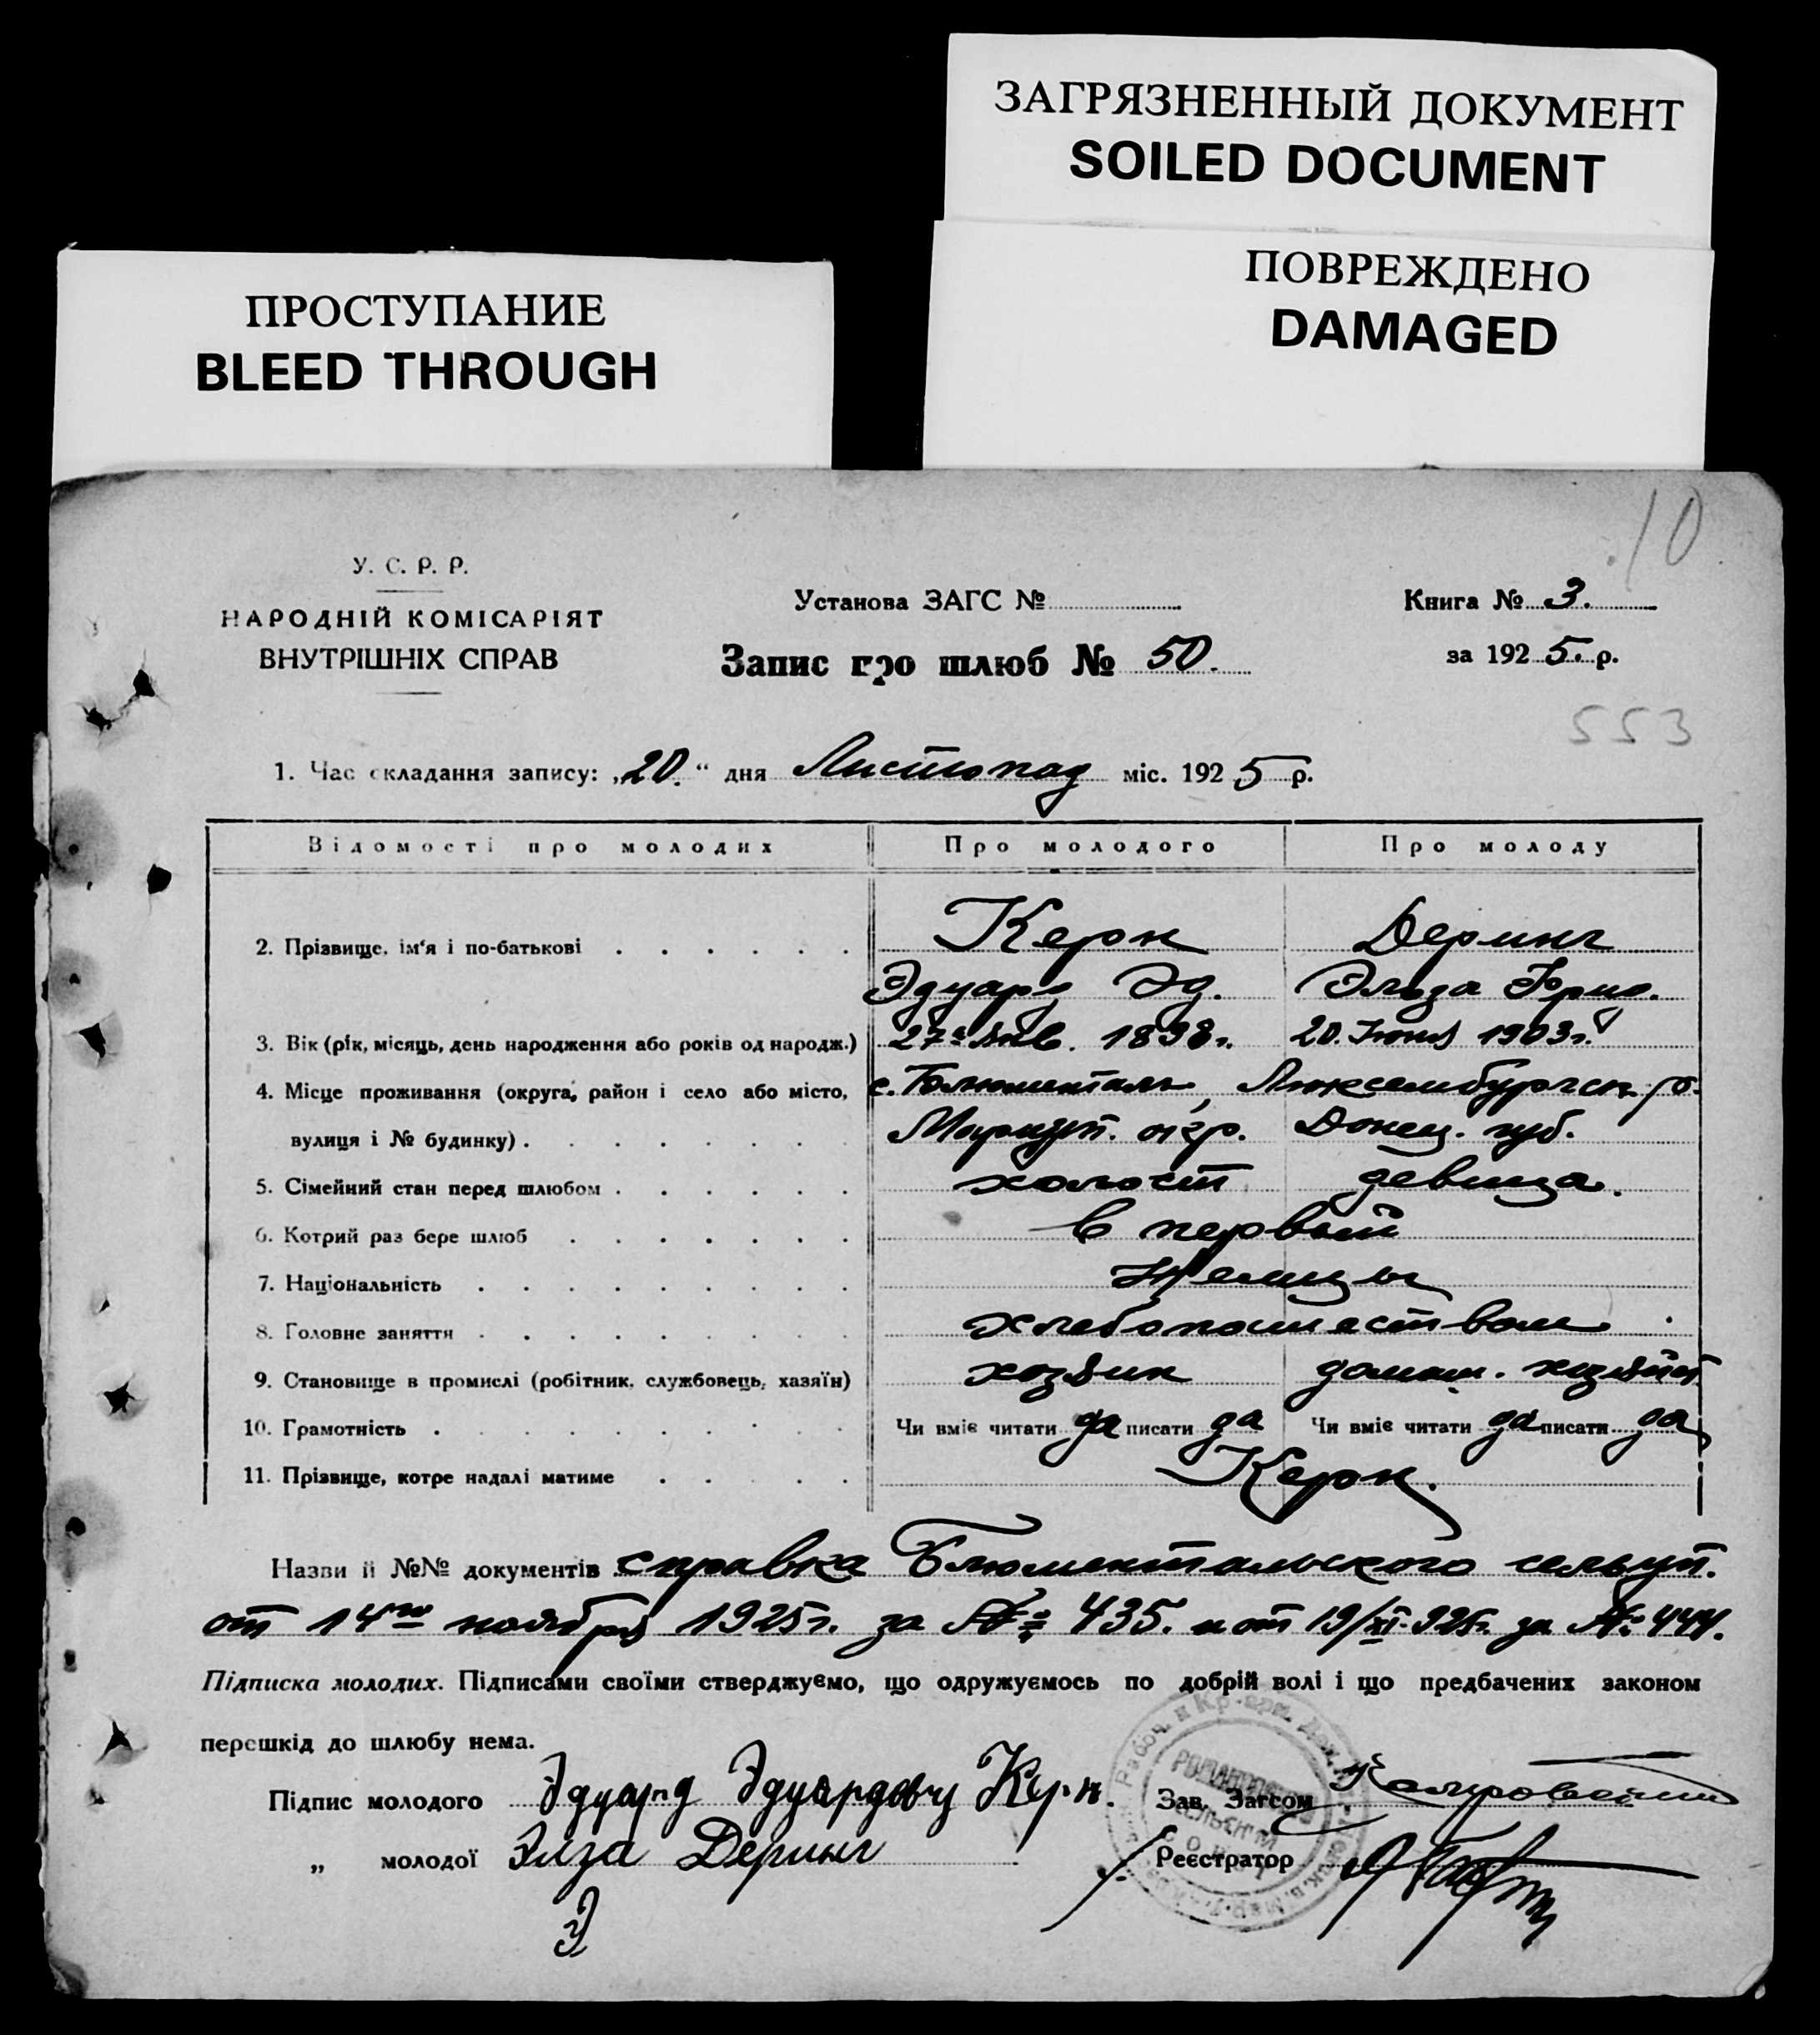 ЗАГРЯЗНЕННЫЙ ДОКУМЕНТ
SOILED DOCUMENT
ПОВРЕЖДЕНО
DAMAGED
ПРОСТУПАНИЕ
BLEED THROUGH
10
У. С. Р. Р.
НАРОДНІЙ КОМІСАРІЯТ
ВНУТРІШНІХ СПРАВ
Установа ЗАГС №
Запис про шлюб № 50.
Книга № 3.
за 1925. р.
553
1. Час складання запису: „20.“ дня Листопад міс. 1925 р.
Відомості про молодих Про молодого Про молоду
2. Прізвище, ім'я і по-батькові Керн Деринг
Эдуард Эд. Эльза Фрид.
3. Вік (рік, місяць, день народження або років од народж.) 27го Янв. 1898г. 20. Июня 1903г.
4. Місце проживання (округа, район і село або місто, с. Блюменталь, Люксембургск. р.
вулиця і № будинку) Мариуп. окр. Донец. губ.
5. Сімейний стан перед шлюбом холост девица.
6. Котрий раз бере шлюб в первый
7. Національність Немцы
8. Головне заняття хлебопашеством
9. Становище в промислі (робітник, службовець, хазяїн) хозяин домаш. хозяйст.
10. Грамотність Чи вміє читати да писати да Чи вміє читати да писати да
11. Прізвище, котре надалі матиме Керн.
Назви й №№ документів справка Блюментальского сельуп.
от 14го ноября 1925г. за № 435. и от 19/XI-925г. за № 444.
Підписка молодих. Підписами своїми стверджуємо, що одружуємось по добрій волі і що предбачених законом
перешкід до шлюбу нема.
Підпис молодого Эдуард Эдуардович Керн. Зав. Загсом
„ молодої Элза Деринг Реєстратор
Э